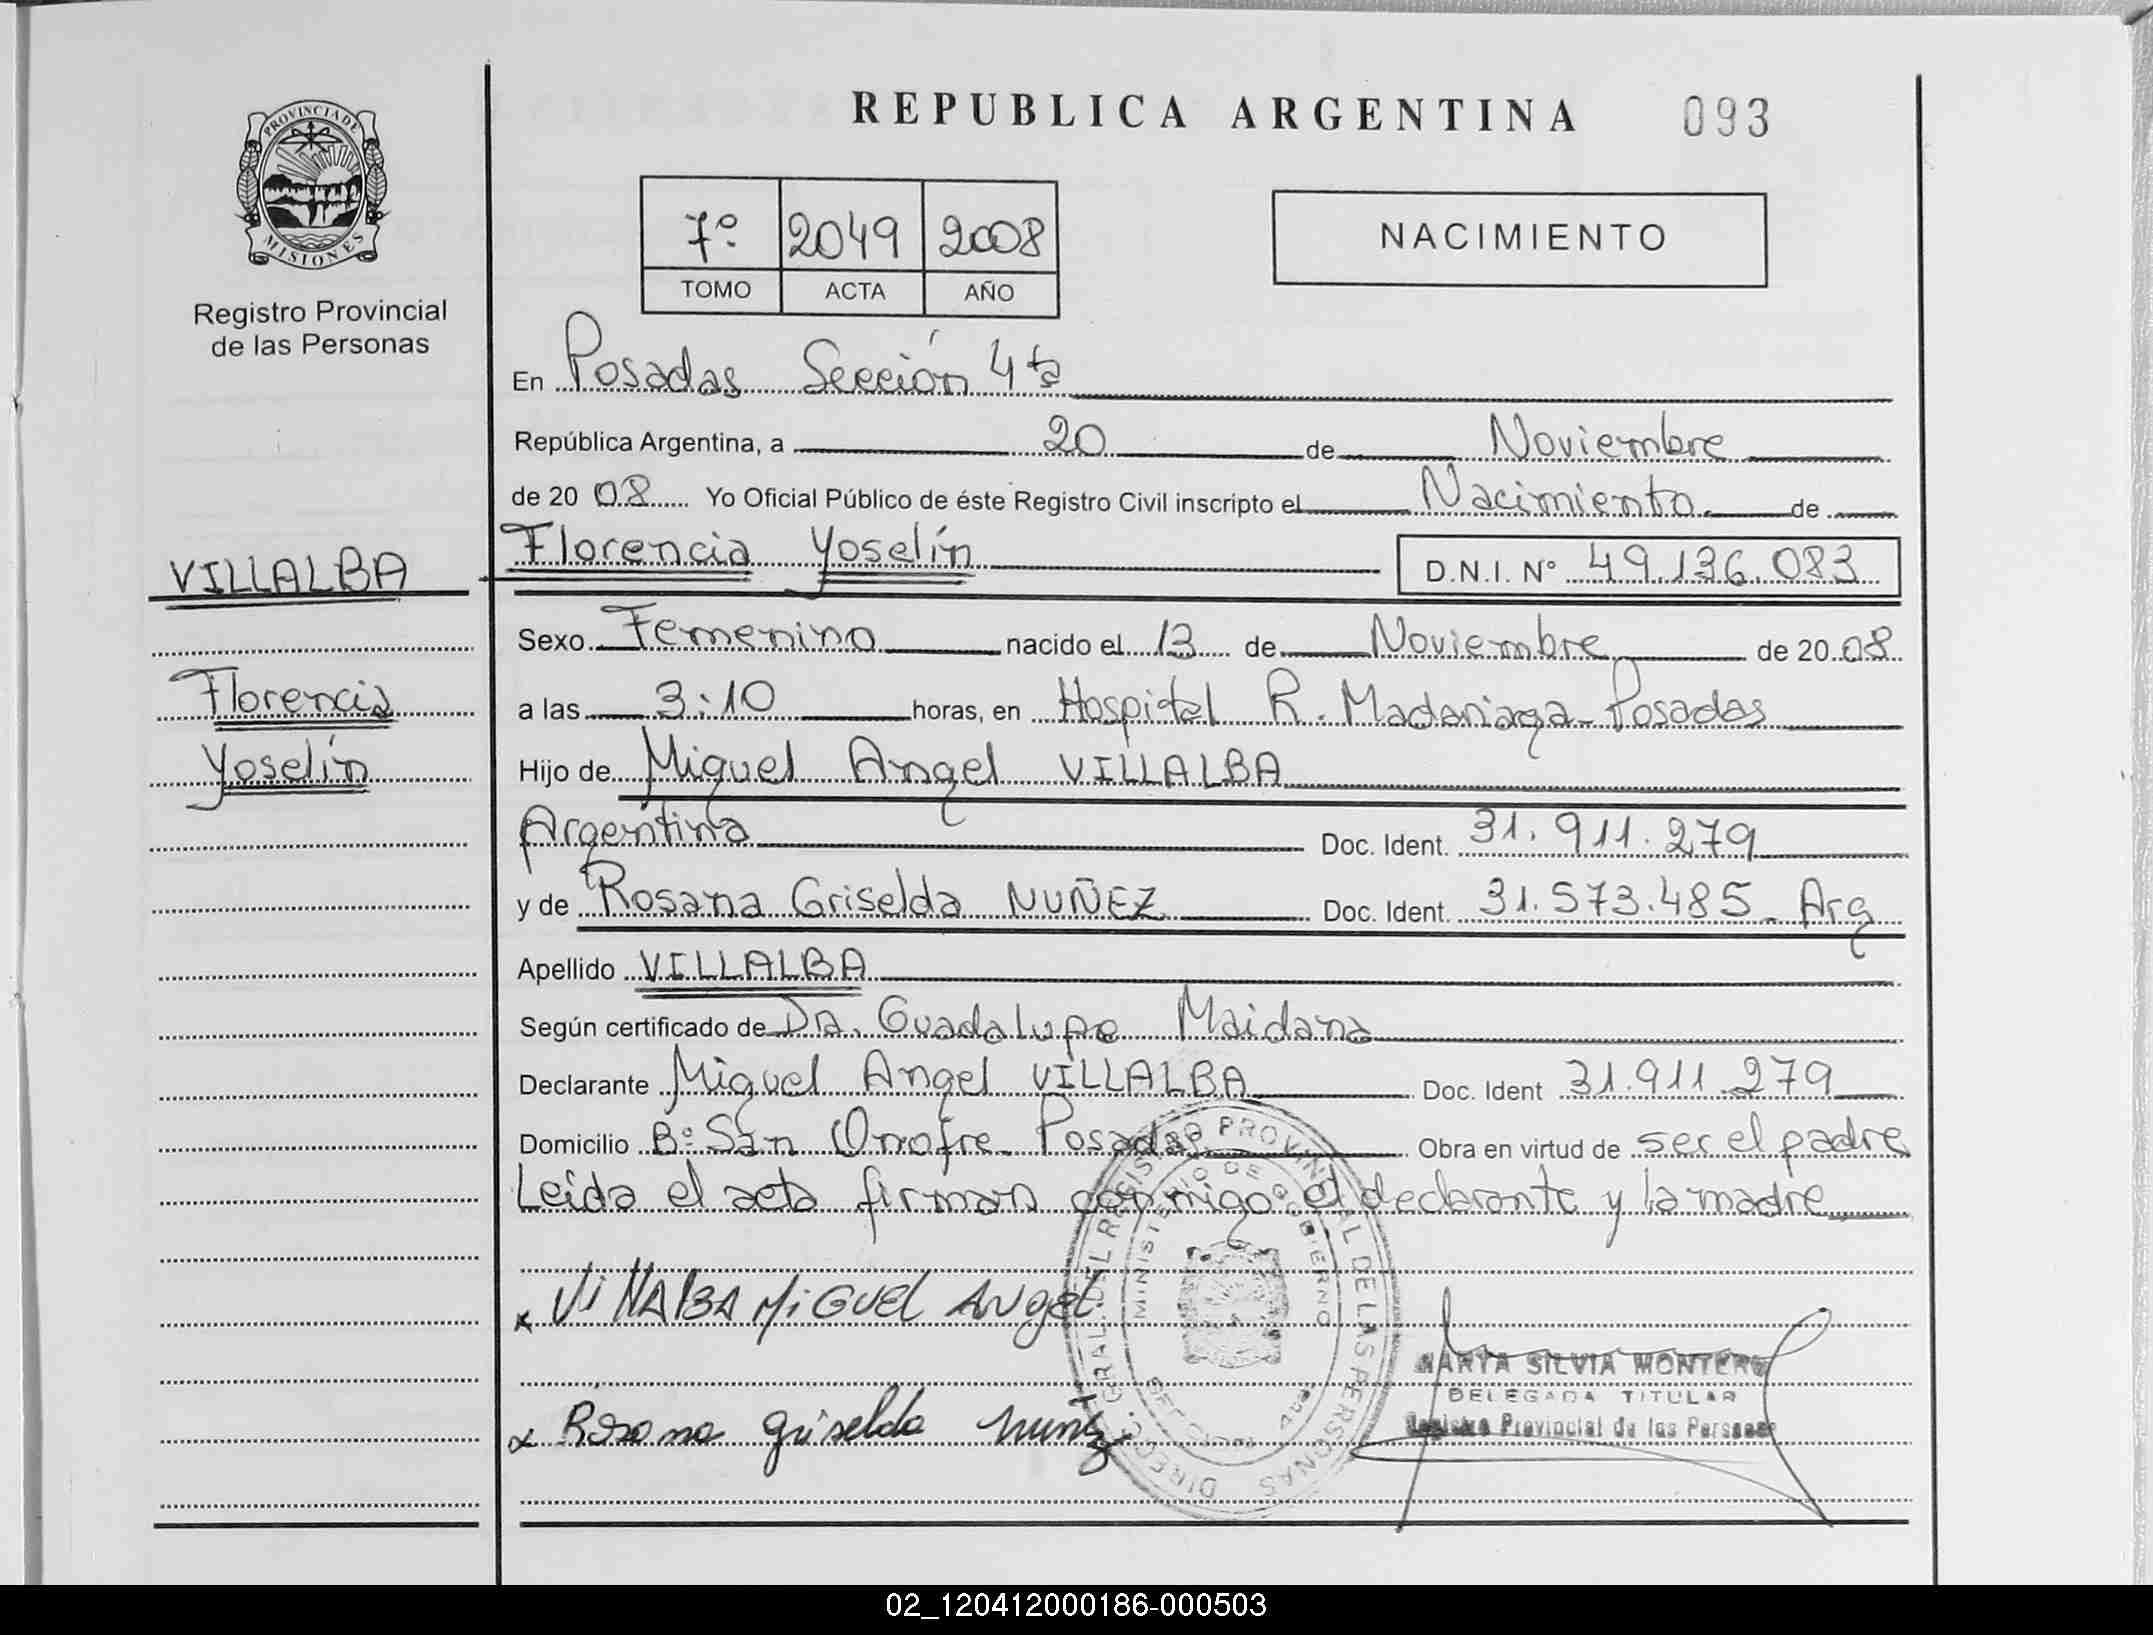 REPUBLICA ARGENTINA 093
PROVINCIA DE
MISIONES
Registro Provincial
de las Personas
7º 2049 2008
TOMO ACTA AÑO
NACIMIENTO
En Posadas Sección 4ta
República Argentina, a 20 de Noviembre
de 2008 Yo Oficial Público de éste Registro Civil inscripto el Nacimiento de
VILLALBA
Florencia Yoselín D.N.I. Nº 49.136.083
Sexo Femenino nacido el 13 de Noviembre de 2008
Florencia
Yoselín
a las 3:10 horas, en Hospital R. Madariaga - Posadas
Hijo de Miguel Angel VILLALBA
Argentina Doc. Ident. 31.911.279
y de Rosana Griselda NUÑEZ Doc. Ident. 31.573.485 - Arg
Apellido VILLALBA
Según certificado de Dra. Guadalupe Maidana
Declarante Miguel Angel VILLALBA Doc. Ident 31.911.279
Domicilio Bº San Onofre - Posadas Obra en virtud de ser el padre
Leída el acta firman conmigo el declarante y la madre
x VillALBA MiGUEL ANgEL
x Rosana griselda nuñez
DIRECC. GRAL. DEL REGISTRO PROVINCIAL DE LAS PERSONAS
MINISTERIO DE GOBIERNO
MARTA SILVIA MONTERO
DELEGADA TITULAR
Registro Provincial de las Personas
02_120412000186-000503